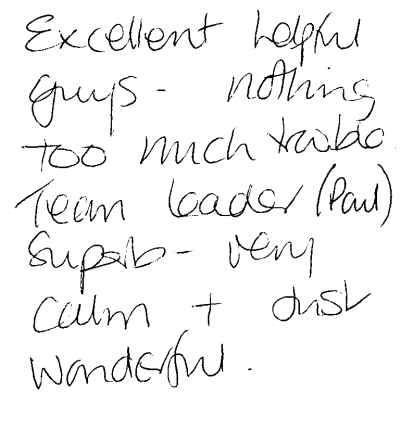 Excellent helpful
guys - nothing
too much trouble.
Team leader (Paul)
Superb - very
calm + just
wonderful.